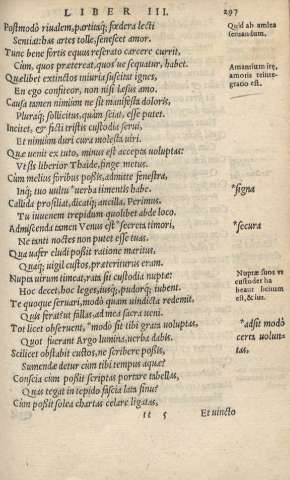 LIBER III. 297
Postmodò riualem, partitaq́; fœdera lecti
Sentiat: has artes tolle, senescet amor.
Tunc bene fortis equus reserato carcere currit,
Cùm, quos prætereat, quos'ue sequatur, habet.
Quælibet extinctos iniuria suscitat ignes,
En ego confiteor, non nisi læsus amo.
Causa tamen nimium ne sit manifesta doloris,
Pluraq́; sollicitus, quàm sciat, esse putet.
Incitet, & ficti tristis custodia serui,
Et nimium duri cura molesta uiri.
Quæ uenit ex tuto, minus est accepta uoluptas:
Vt sis liberior Thaide, finge metus.
Cùm melius foribus possis, admitte fenestra,
Inq́; tuo uultu *uerba timentis habe.
Callida prosiliat, dicatq́; ancilla, Perimus.
Tu iuuenem trepidum quolibet abde loco.
Admiscenda tamen Venus est *secreta timori,
Ne tanti noctes non putet esse tuas.
Qua uafer eludi possit ratione maritus,
Quaq́; uigil custos, præteriturus eram.
Nupta uirum timeat, rata sit custodia nuptæ:
Hoc decet, hoc leges, iusq́;, pudorq́; iubent.
Te quoque seruari, modò quam uindicta redemit,
Quis ferat? ut fallas, ad mea sacra ueni.
Tot licet obseruent, *modò sit tibi grata uoluptas,
Quot fuerant Argo lumina, uerba dabis.
Scilicet obstabit custos, ne scribere possis,
Sumendæ detur cùm tibi tempus aquæ?
Conscia cùm possit scriptas portare tabellas,
Quas tegat in tepido fascia lata sinu?
Cùm possit solea chartas celare ligatas,
tt 5 Et uincto
Quid ab amica
seruandum.
Amantium irę,
amoris reinte-
gratio est.
*signa
*secura
Nuptæ suos ut
custodes ha
beant licitum
est, & ius.
*adsit modò
certa uolun-
tas,